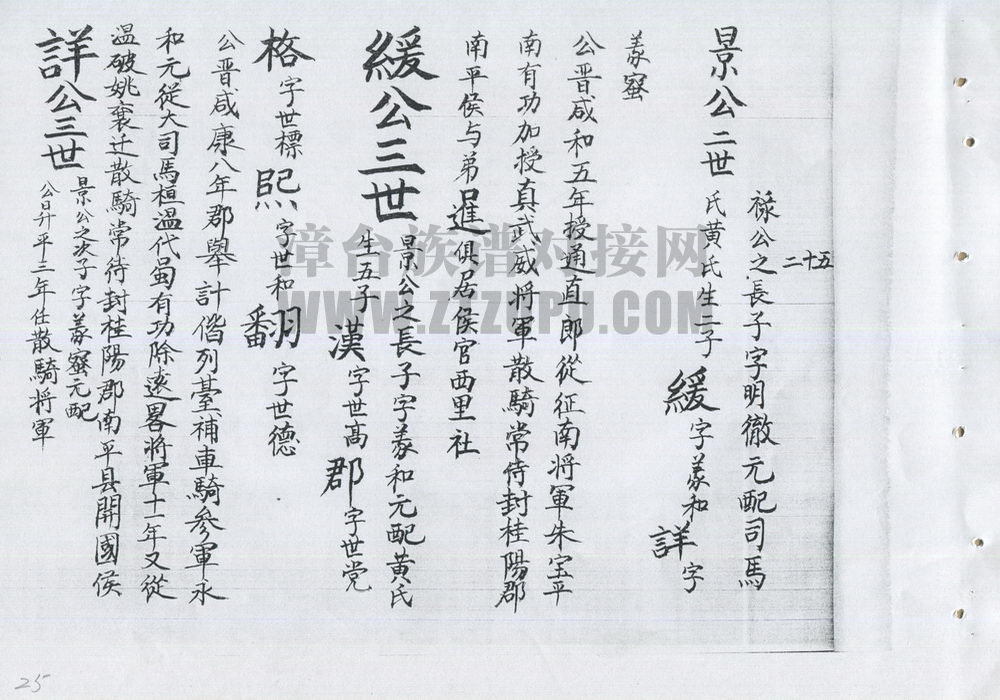 二十五
景公二世
祿公之長子字明徹元配司馬
氏黃氏生二子 緩字義和 詳字
義窰
公晋咸和五年授通直郎從征南將軍朱宝平
南有功加授真武威将軍散騎常侍封桂陽郡
南平侯与弟暹俱居侯官西里社
緩公三世
景公之長子字義和元配黃氏
生五子 漢字世高 郡字世党
格字世標 熙字世和 翻字世德
公晋咸康八年郡舉計偕列臺補車騎參軍永
和元從大司馬桓温代蜀有功除遠畧將軍十一年又從
温破姚襄迁散騎常待封桂陽郡南平县開國侯
詳公三世
景公之次子字義窰元配
公晋升平三年任散騎将軍
漳台族谱对接网
WWW.ZTZUPU.COM
25